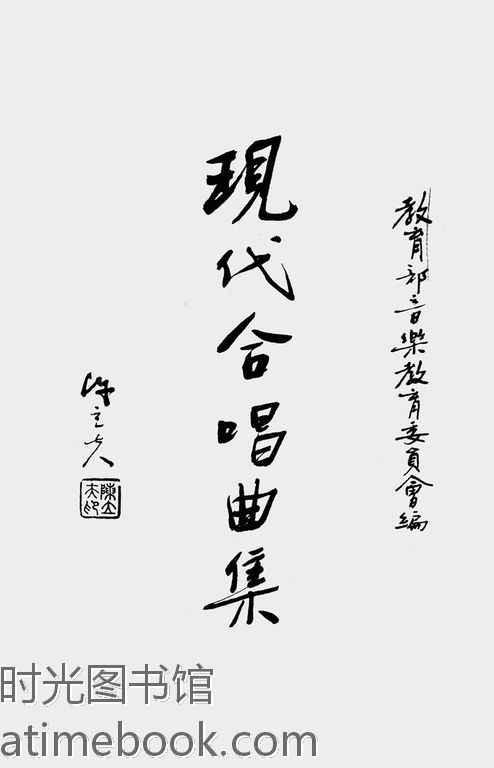 教育部音樂教育委員會編
現代合唱曲集
陳立夫
陳立夫印
时光图书馆
atimebook.com